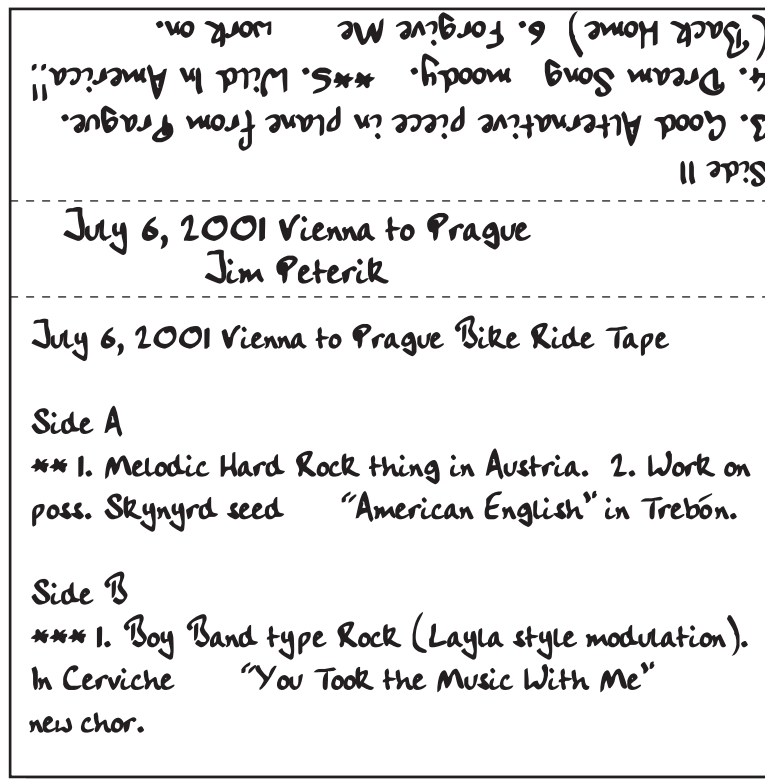 Side II
3. Good Alternative piece in plane from Prague.
4. Dream Song moody. **5. Wild In America!!
(Back Home) 6. Forgive Me work on.
July 6, 2001 Vienna to Prague
Jim Peterik
July 6, 2001 Vienna to Prague Bike Ride Tape
Side A
** 1. Melodic Hard Rock thing in Austria. 2. Work on
poss. Skynyrd seed "American English" in Trebón.
Side B
*** 1. Boy Band type Rock (Layla style modulation).
In Cerviche "You Took the Music With Me"
new chor.